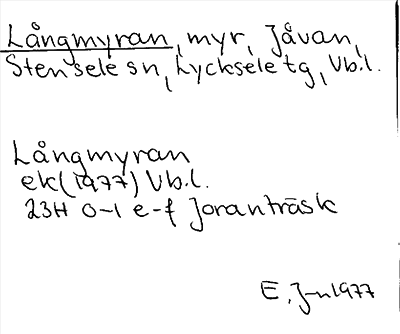 Långmyran, myr, Jåvan,
Stensele sn, Lycksele tg, Vb.l.
Långmyran
ek(1977) Vb.l.
23H 0-1 e-f Joranträsk
E. 1977